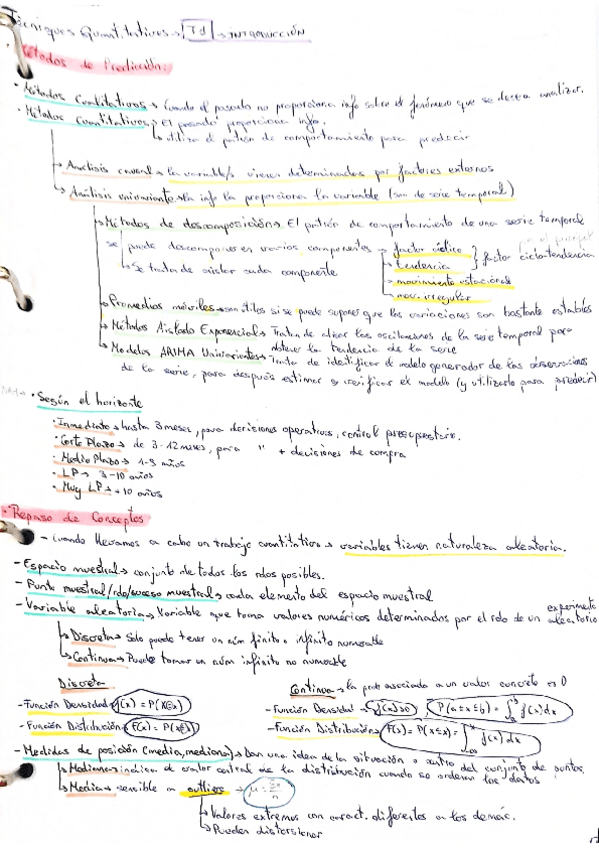 Tècniques Quantitatives → T1 → INTRODUCCIÓN
Métodos de Predicción:
· Métodos Cualitativos → Cuando el pasado no proporciona info sobre el fenómeno que se desea analizar.
· Métodos Cuantitativos → El pasado proporciona info.
↳ utiliza el patrón de comportamiento para predecir
→ Análisis causal → la variable/s vienen determinadas por factores externos
→ Análisis univariante → la info la proporciona la variable (son de serie temporal)
→ Métodos de descomposición → El patrón de comportamiento de una serie temporal
se puede descomponer en varios componentes → factor cíclico
→ tendencia } factor ciclo-tendencia
↳ Se trata de aislar cada componente
→ movimiento estacional
→ mov. irregular
→ Promedios móviles → son útiles si se puede suponer que las variaciones son bastante estables
→ Métodos Alisado Exponencial → Tratan de alisar las oscilaciones de la serie temporal para
obtener la tendencia de la serie
→ Modelos ARIMA Univariantes → Trata de identificar el modelo generador de las observaciones
de la serie, para después estimar y verificar el modelo (y utilizarlo para predecir)
· Según el horizonte
· Inmediato → hasta 3 meses, para decisiones operativas, control presupuestario.
· Corto Plazo → de 3-12 meses, para " + decisiones de compra
· Medio Plazo → 1-3 años
· LP → 3-10 años
· Muy LP → +10 años
· Repaso de Conceptos
- Cuando llevamos a cabo un trabajo cuantitativo → variables tienen naturaleza aleatoria.
- Espacio muestral → conjunto de todos los rdos posibles.
- Punto muestral/rdo/suceso muestral → cada elemento del espacio muestral
- Variable aleatoria → Variable que toma valores numéricos determinados por el rdo de un experimento aleatorio
↳ Discreta → Solo puede tener un núm finito o infinito numerable
↳ Continua → Puede tomar un núm infinito no numerable
Discreta
Continua → la prob asociada a un valor concreto es 0
- Función Densidad → f(x) = P(X=x)
- Función Densidad → f(x)≥0 P(a≤x≤b) = ∫ₐᵇ f(x)dx
- Función Distribución → F(x) = P(X≤x)
- Función Distribución → F(x) = P(X≤x) = ∫ f(x)dx
- Medidas de posición (media, mediana) → Dan una idea de la situación o centro del conjunto de puntos.
↳ Mediana → indica el valor central de la distribución cuando se ordenan los datos
↳ Media → sensible a outliers →
↳ Valores extremos con caract. diferentes a los demás.
↳ Pueden distorsionar